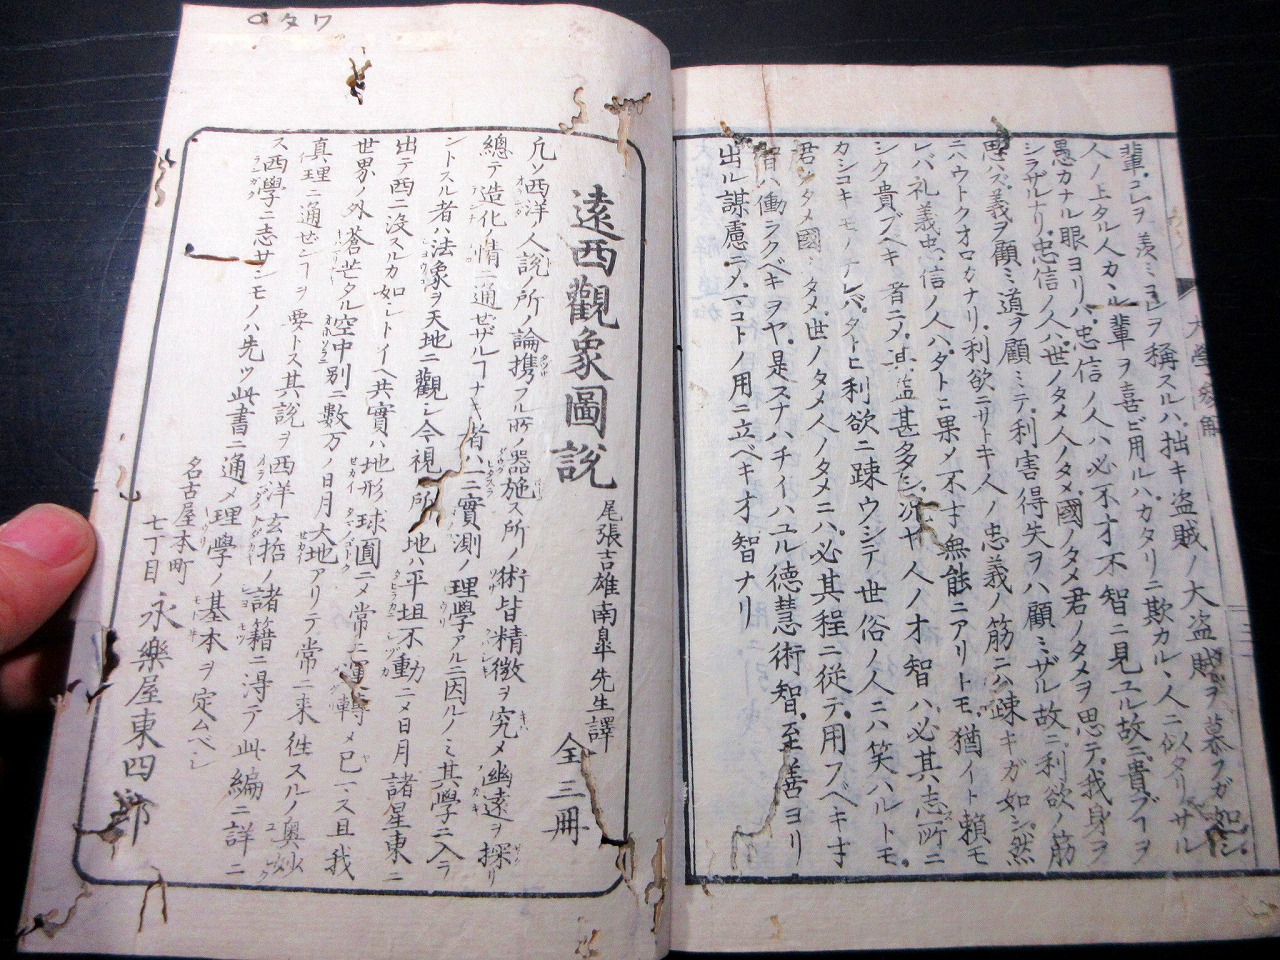 輩コレヲ羨ミコレヲ稱スルハ拙キ盗賊ノ大盗賊ヲ慕フガ如シ
人ノ上タル人カヽル輩ヲ喜ビ用ルハカタリニ欺カルヽ人ニ以タリサル
愚カナル眼ヨリハ忠信ノ人ハ必不才不智ニ見ユル故ニ貴ブヿヲ
シラザルナリ忠信ノ人ハ世ノタメ人ノタメ國ノタメ君ノタメヲ思テ我身ヲ
思ハズ義ヲ顧ミ道ヲ顧ミテ利害得失ヲハ顧ミザル故ニ利欲ノ筋
ニハウトクオロカナリ利欲ニサトキ人ノ忠義ノ筋ニハ疎キガ如シ然
レバ礼義忠信ノ人ハタトヒ果メ不才無能ニアリトモ猶イト頼モ
シク貴ブベキ者ニメ其益甚多シ況ヤ人ノ才智ハ必其志所ニ
カシコキモノナレバタトヒ利欲ニ疎ウシテ世俗ノ人ニハ笑ハルトモ
君ノタメ國ノタメ世ノタメ人ノタメニハ必其程ニ従テ用フベキ才
智ハ働ラクベキヲヤ是スナハチイハユル德慧術智至善ヨリ
出ル謀慮ニメマコトノ用ニ立ベキ才智ナリ
遠西觀象圖說
尾張吉雄南皐先生譯
全三冊
凡ソ西洋ノ人說ノ所ノ論携フル所ノ器施ス所ノ術皆精微ヲ究メ幽遠ヲ探リ
總テ造化ノ情ニ通ゼザルヿナキ者ハ一ニ實測ノ理學アルニ因ルノミ其學ニ入ラ
ントスル者ハ法象ヲ天地ニ觀ル今視ル所ノ地ハ平坦不動ニメ日月諸星東ニ
出テ西ニ没スルカ如レトイヘ共實ハ地形球圓ニメ常ニ運轉メ已マス且我
世界ノ外蒼茫タル空中別ニ數万ノ日月大地アリテ常ニ来徃スルノ奥妙
真理ニ通ゼンヿヲ要トス其說ヲ西洋玄哲ノ諸籍ニ淂テ此編ニ詳ニ
ス西學ニ志サンモノハ先ツ此書ニ通メ理學ノ基本ヲ定ムベシ
名古屋本町
七丁目
永樂屋東四郎